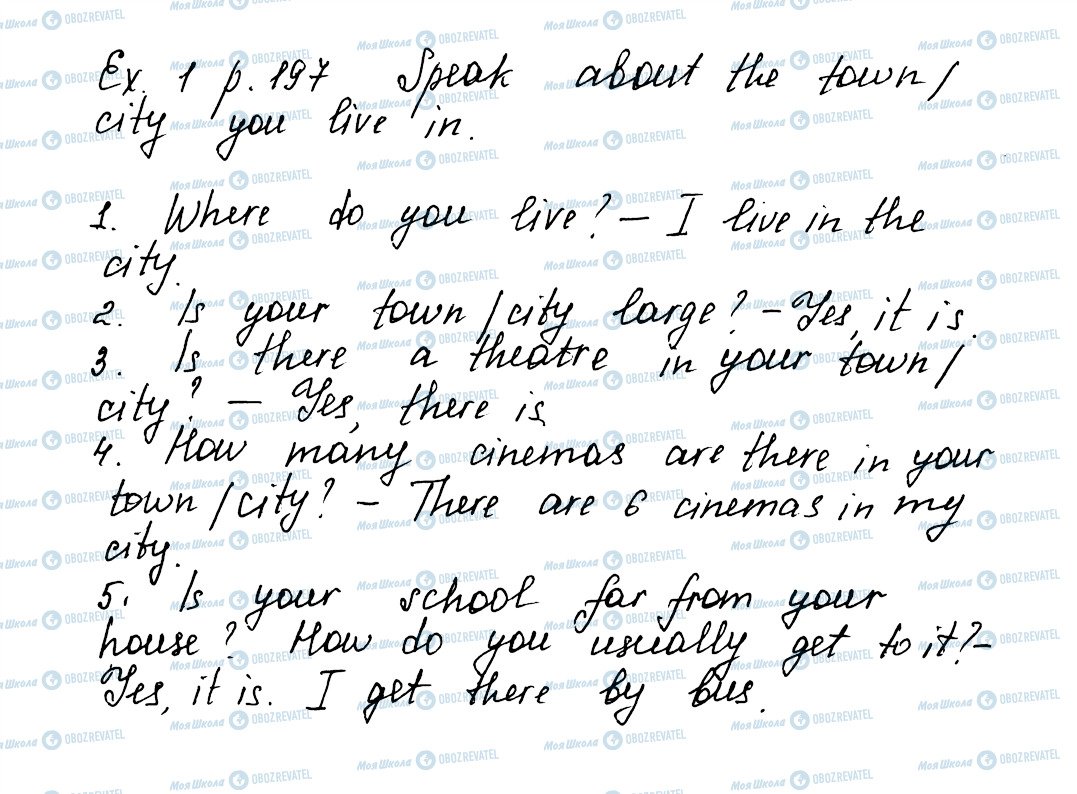 Ex. 1 p. 197 Speak about the town /
city you live in.
1. Where do you live? – I live in the
city.
2. Is your town / city large? – Yes, it is.
3. Is there a theatre in your town /
city? – Yes, there is.
4. How many cinemas are there in your
town / city? – There are 6 cinemas in my
city.
5. Is your school far from your
house? How do you usually get to it? –
Yes, it is. I get there by bus.